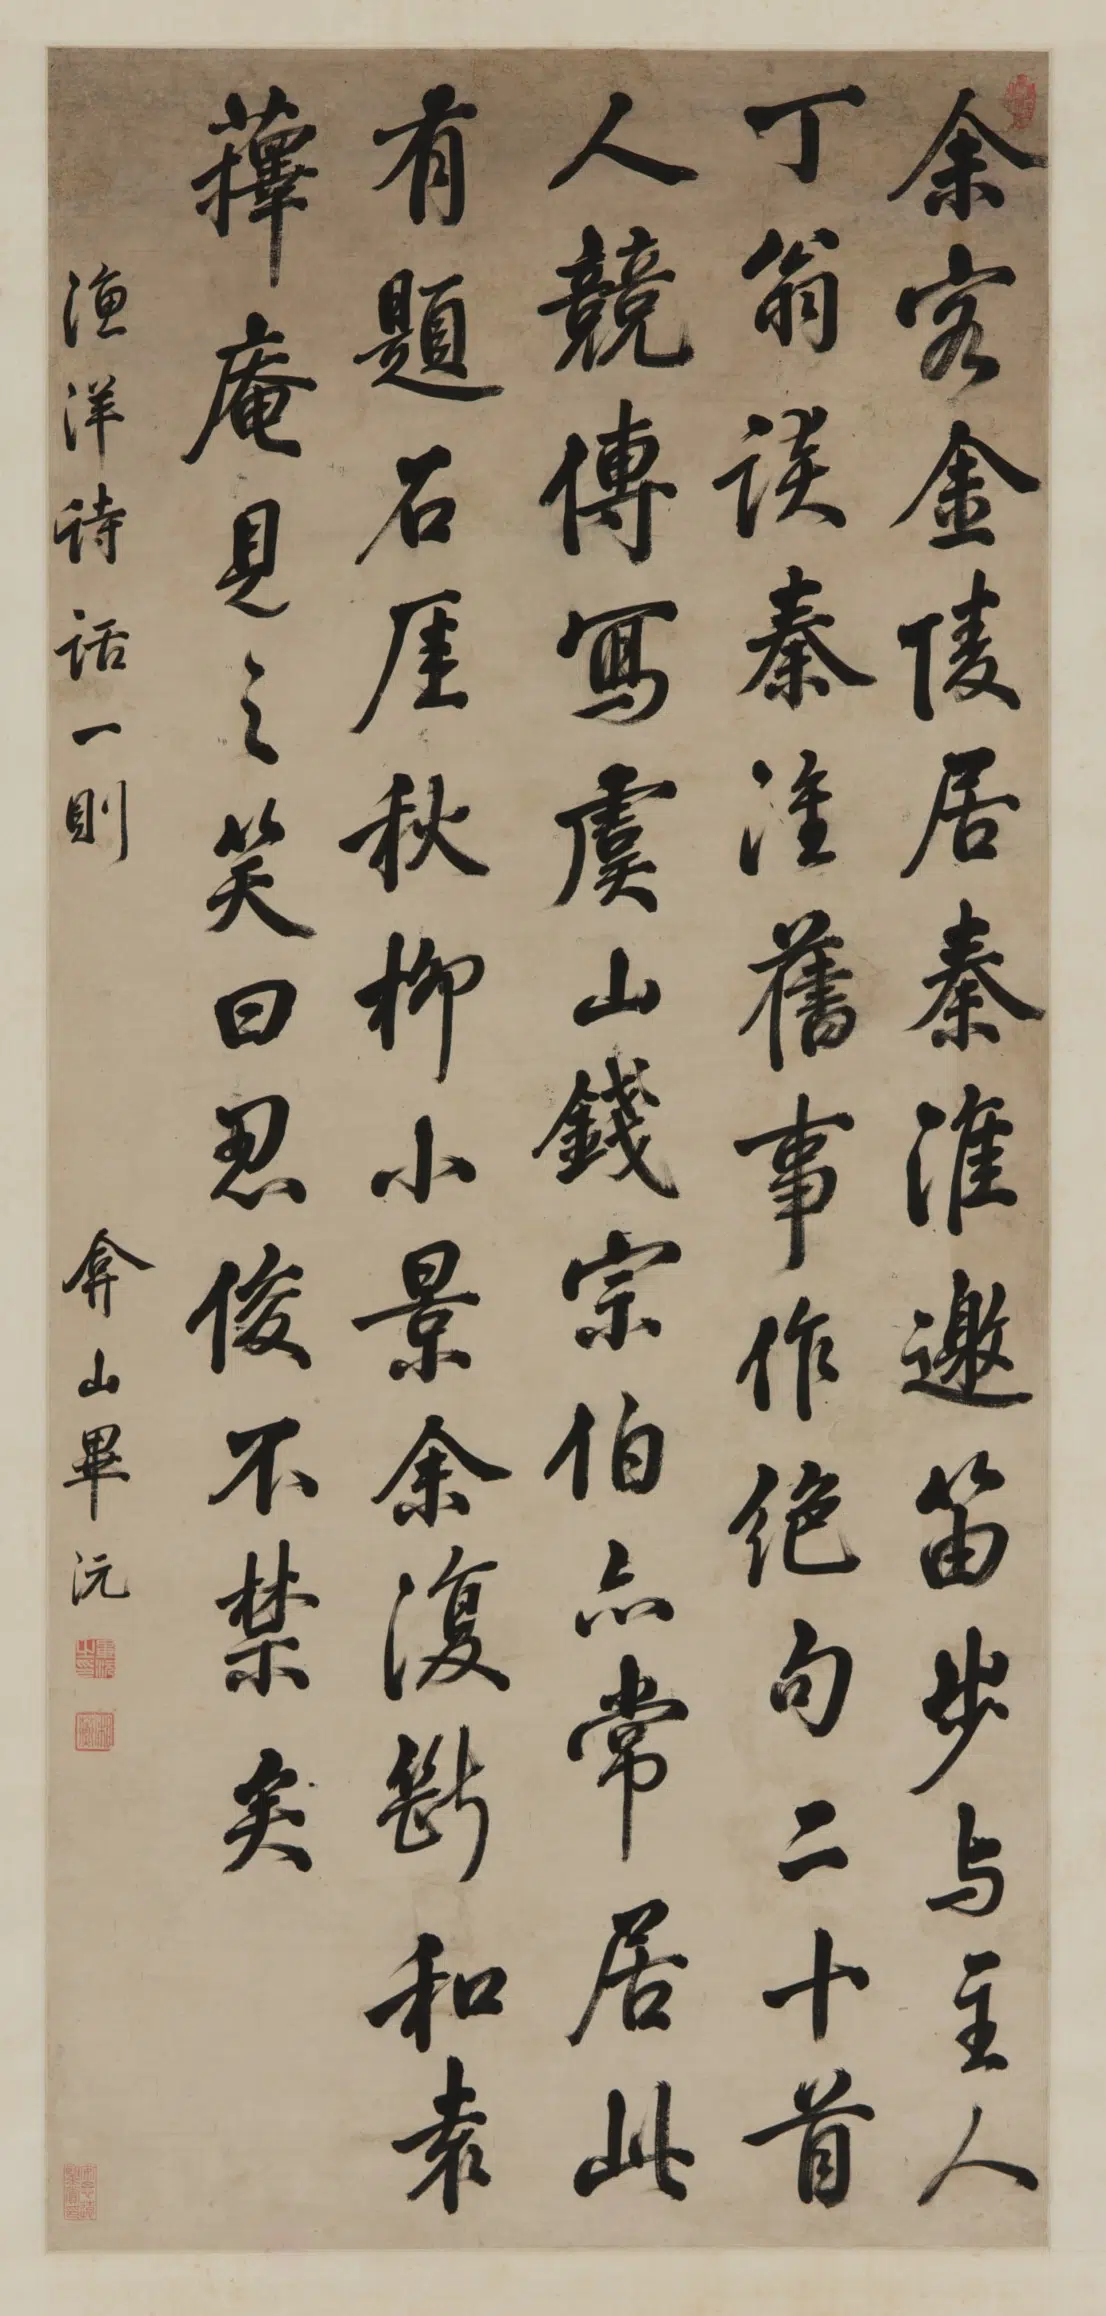 余客金陵居秦淮邀笛步与主人
丁翁談秦淮舊事作絕句二十首
人競傳寫虞山錢宗伯亦常居此
有題石厓秋柳小景余復斷和袁
蘀庵見之笑曰忍俊不禁矣
漁洋詩話一則
弇山畢沅